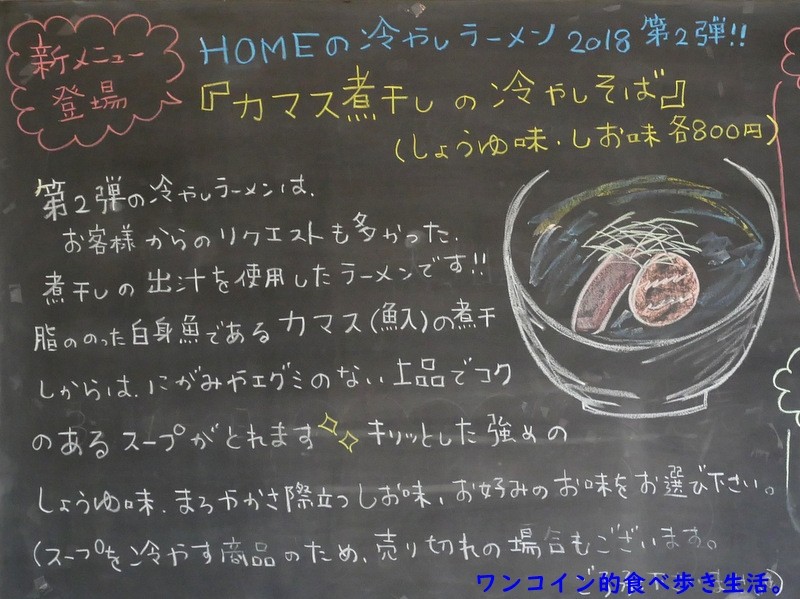 新メニュー
登場
HOMEの冷やしラーメン 2018 第2弾!!
『カマス煮干しの冷やしそば』
(しょうゆ味・しお味 各800円)
第2弾の冷やしラーメンは、
お客様からのリクエストも多かった、
煮干しの出汁を使用したラーメンです!!
脂ののった自身魚であるカマス(魳)の煮干
しからは、にがみやエグミのない上品でコク
のあるスープがとれます キリッとした強めの
しょうゆ味、まろやかさ際立つしお味、お好みのお味をお選び下さい。
(スープを冷やす商品のため、売り切れの場合もございます。
ワンコイン的食べ歩き生活。